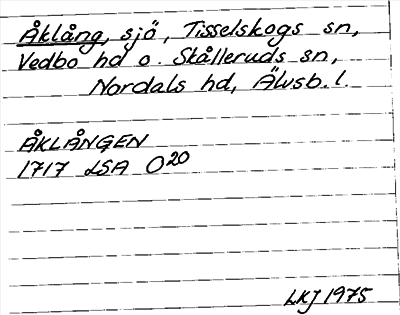 Åklång, sjö, Tisselskogs sn,
Vedbo hd o. Skålleruds sn,
Nordals hd, Älvsb. l.
ÅKLÅNGEN
1717 LSA O20
LKJ 1975